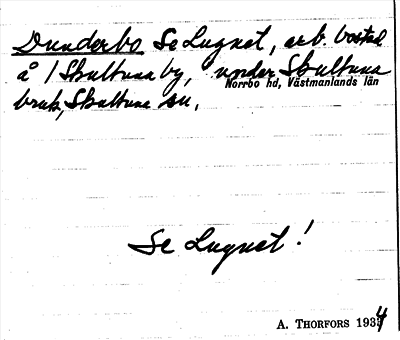 Dunderbo Se Lugnet, arb. bostad
å 1 Skultuna by, under Skultuna
Norrbo hd, Västmanlands län
bruk, Skultuna sn.
Se Lugnet!
A. THORFORS 1934